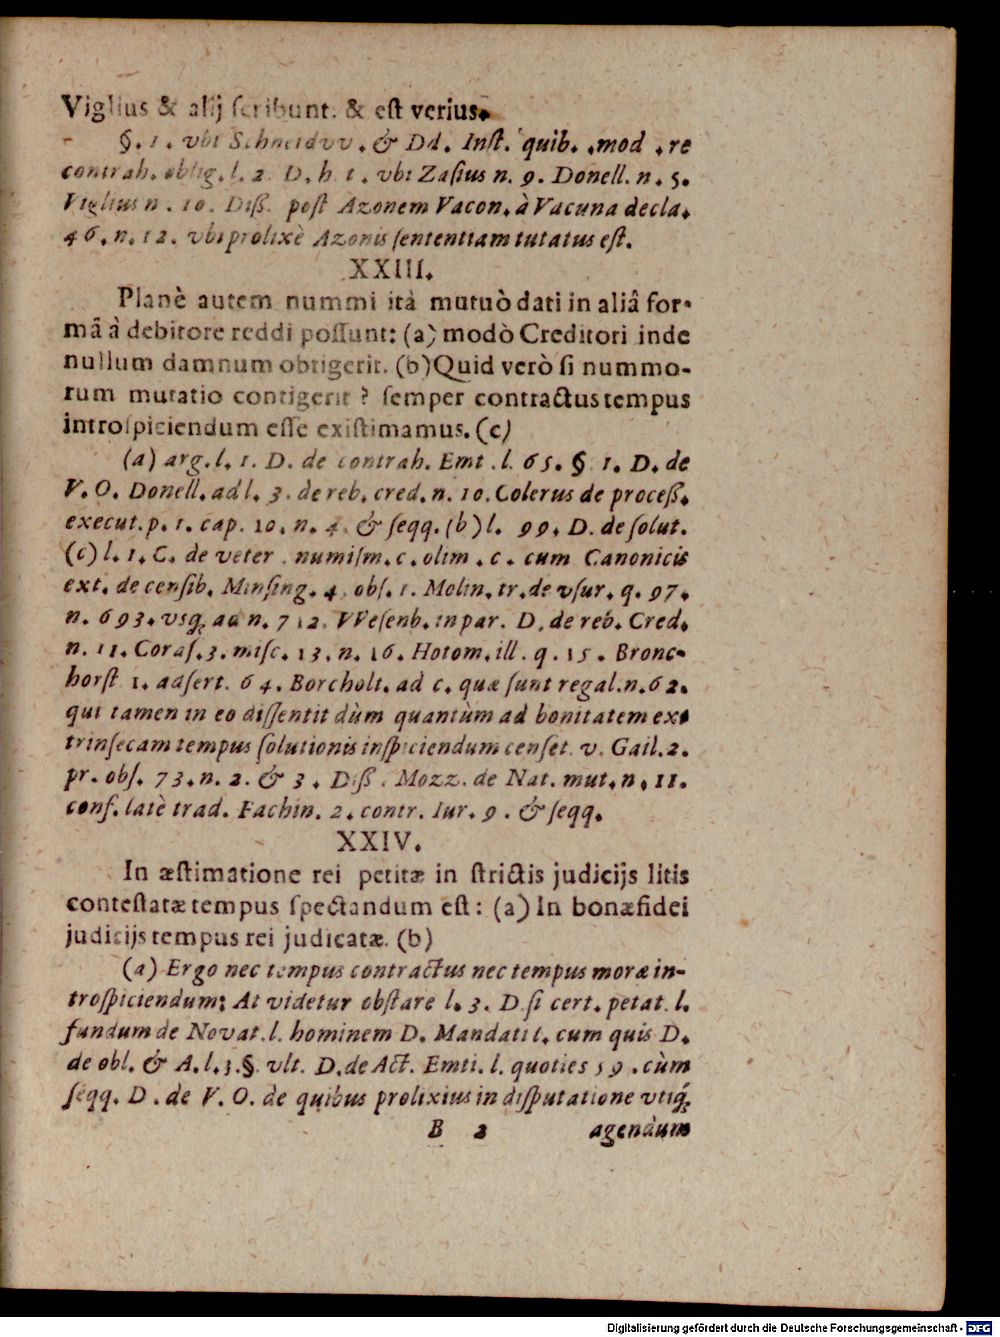 Viglius & alij ſcribunt. & eſt verius.
§. 1. vbi Schneidvv. & Dd. Inſt. quib. mod. re
contrah. oblig. l. 2. D. h. t. vbi Zaſius n. 9. Donell. n. 5.
Viglius n. 10. Diß. poſt Azonem Vacon. à Vacuna decla.
46. n. 12. vbi prolixè Azonis ſententiam tutatus eſt.
XXIII.
Planè autem nummi ità mutuò dati in aliâ for-
mâ à debitore reddi poſſunt: (a) modò Creditori inde
nullum damnum obtigerit. (b) Quid verò ſi nummo-
rum mutatio contigerit? ſemper contractus tempus
introſpiciendum eſſe exiſtimamus. (c)
(a) arg. l. 1. D. de contrah. Emt. l. 65. § 1. D. de
V. O. Donell. ad l. 3. de reb. cred. n. 10. Colerus de proceß.
execut. p. 1. cap. 10. n. 4. & ſeqq. (b) l. 99. D. de ſolut.
(c) l. 1. C. de veter. numiſm. c. olim. c. cum Canonicis
ext. de cenſib. Minſing. 4. obſ. 1. Molin. tr. de vſur. q. 97.
n. 693. vsq; ad n. 712. VVeſenb. in par. D. de reb. Cred.
n. 11. Coraſ. 3. miſc. 13. n. 16. Hotom. ill. q. 15. Bronc-
horſt 1. adſert. 64. Borcholt. ad c. quæ ſunt regal. n. 62.
qui tamen in eo diſſentit dùm quantùm ad bonitatem ex-
trinſecam tempus ſolutionis inſpiciendum cenſet. v. Gail. 2.
pr. obſ. 73. n. 2. & 3. Diß. Mozz. de Nat. mut. n. 11.
conf. latè trad. Fachin. 2. contr. Iur. 9. & ſeqq.
XXIV.
In æſtimatione rei petitæ in ſtrictis judicijs litis
conteſtatæ tempus ſpectandum eſt: (a) In bonæ fidei
judicijs tempus rei judicatæ. (b)
(a) Ergo nec tempus contractus nec tempus moræ in-
troſpiciendum; At videtur obſtare l. 3. D. ſi cert. petat. l.
fundum de Novat. l. hominem D. Mandati l. cum quis D.
de obl. & A. l. 3. §. vlt. D. de Act. Emti. l. quoties 59. cùm
ſeqq. D. de V. O. de quibus prolixius in diſputatione vtiq;
B 2 agendum
Digitalisierung gefördert durch die Deutsche Forschungsgemeinschaft - DFG